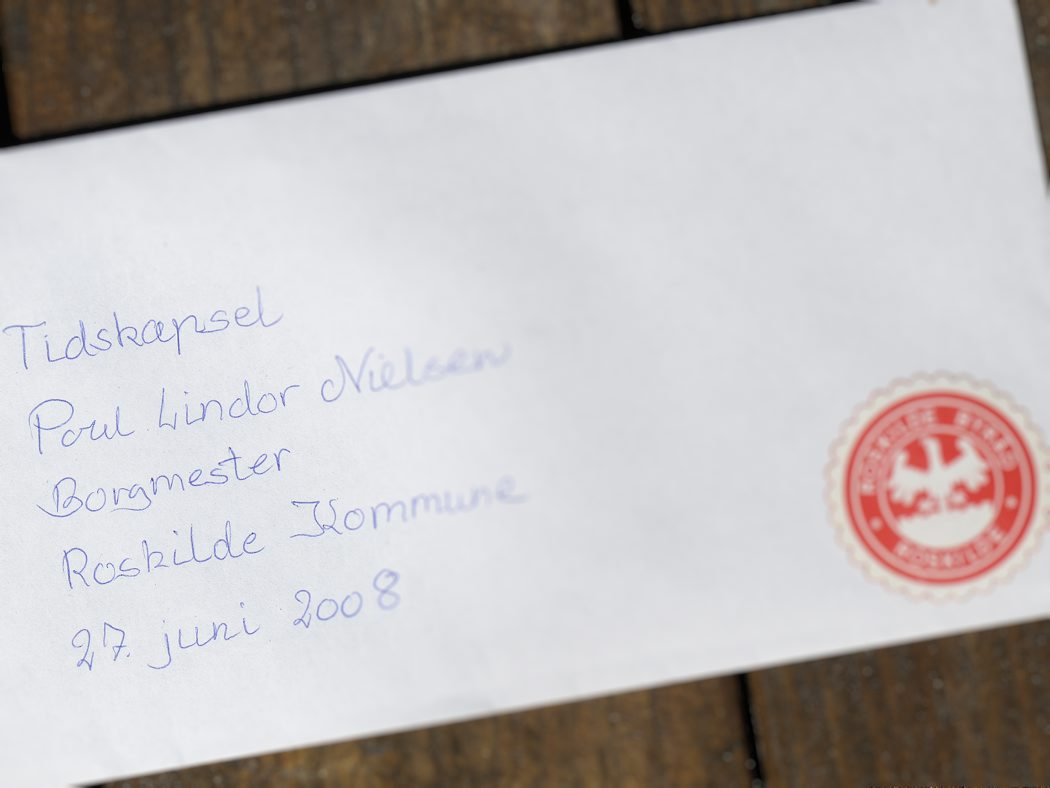 Tidskapsel
Poul Lindor Nielsen
Borgmester
Roskilde Kommune
27. juni 2008
ROSKILDE BYRÅD
ROSKILDE